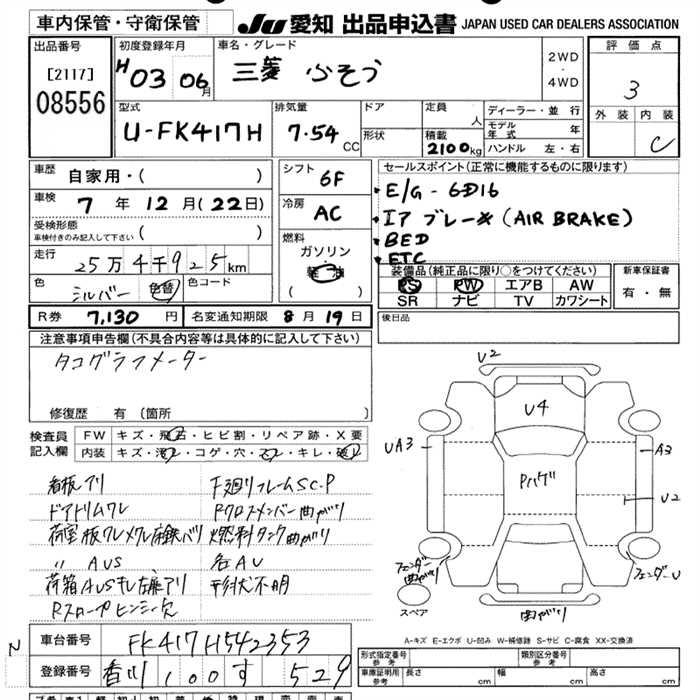 車内保管・守衛保管
JU 愛知 出品申込書 JAPAN USED CAR DEALERS ASSOCIATION
出品番号
[2117]
08556
初度登録年月
H 03 06月
車名・グレード
三菱 ふそう
2WD
・
4WD
評価点
3
外装 内装
C
型式
U-FK417H
排気量
7.54 CC
ドア
形状
定員
人
積載
2100kg
ディーラー・並行
モデル年式 年
ハンドル 左・右
車歴
自家用・( )
車検
7年 12月(22日)
受検形態
車検付きのみ記入して下さい ( )
走行
25万4千925km
色
シルバー 色替
色コード
シフト
6F
冷房
AC
燃料
ガソリン
軽油
( )
セールスポイント(正常に機能するものに限ります)
E/G - 6D16
エア ブレーキ (AIR BRAKE)
BED
ETC
装備品(純正品に限り○をつけてください)
PS PW エアB AW
SR ナビ TV カワシート
新車保証書
有・無
R券 7,130円
名変通知期限 8月19日
後日品
注意事項申告欄(不具合内容等は具体的に記入して下さい)
タコグラフメーター
修復歴 有(箇所 )
検査員記入欄
FW キズ・飛石・ヒビ割・リペア跡・X要
内装 キズ・汚レ・コゲ・穴・スレ・キレ・破レ
看板アリ
ドアドリムワレ
〃 AUS
Rスロープヒンジ欠
下廻リフレームSC.P
Rクロスメンバー曲がり
燃料タンク曲がり
各AU
形状不明
V2
U4
UA3
A3
Rハゲ
U2
フェンダー曲がり
フェンダーU
スペア
曲がり
A-キズ E-エクボ U-凹み W-補修跡 S-サビ C-腐食 XX-交換済
N
車台番号 FK417H542353
登録番号 香川 100 す 529
形式指定番号
参考
類別区分番号
参考
車庫証明用
参考
長さ cm
幅 cm
高さ cm